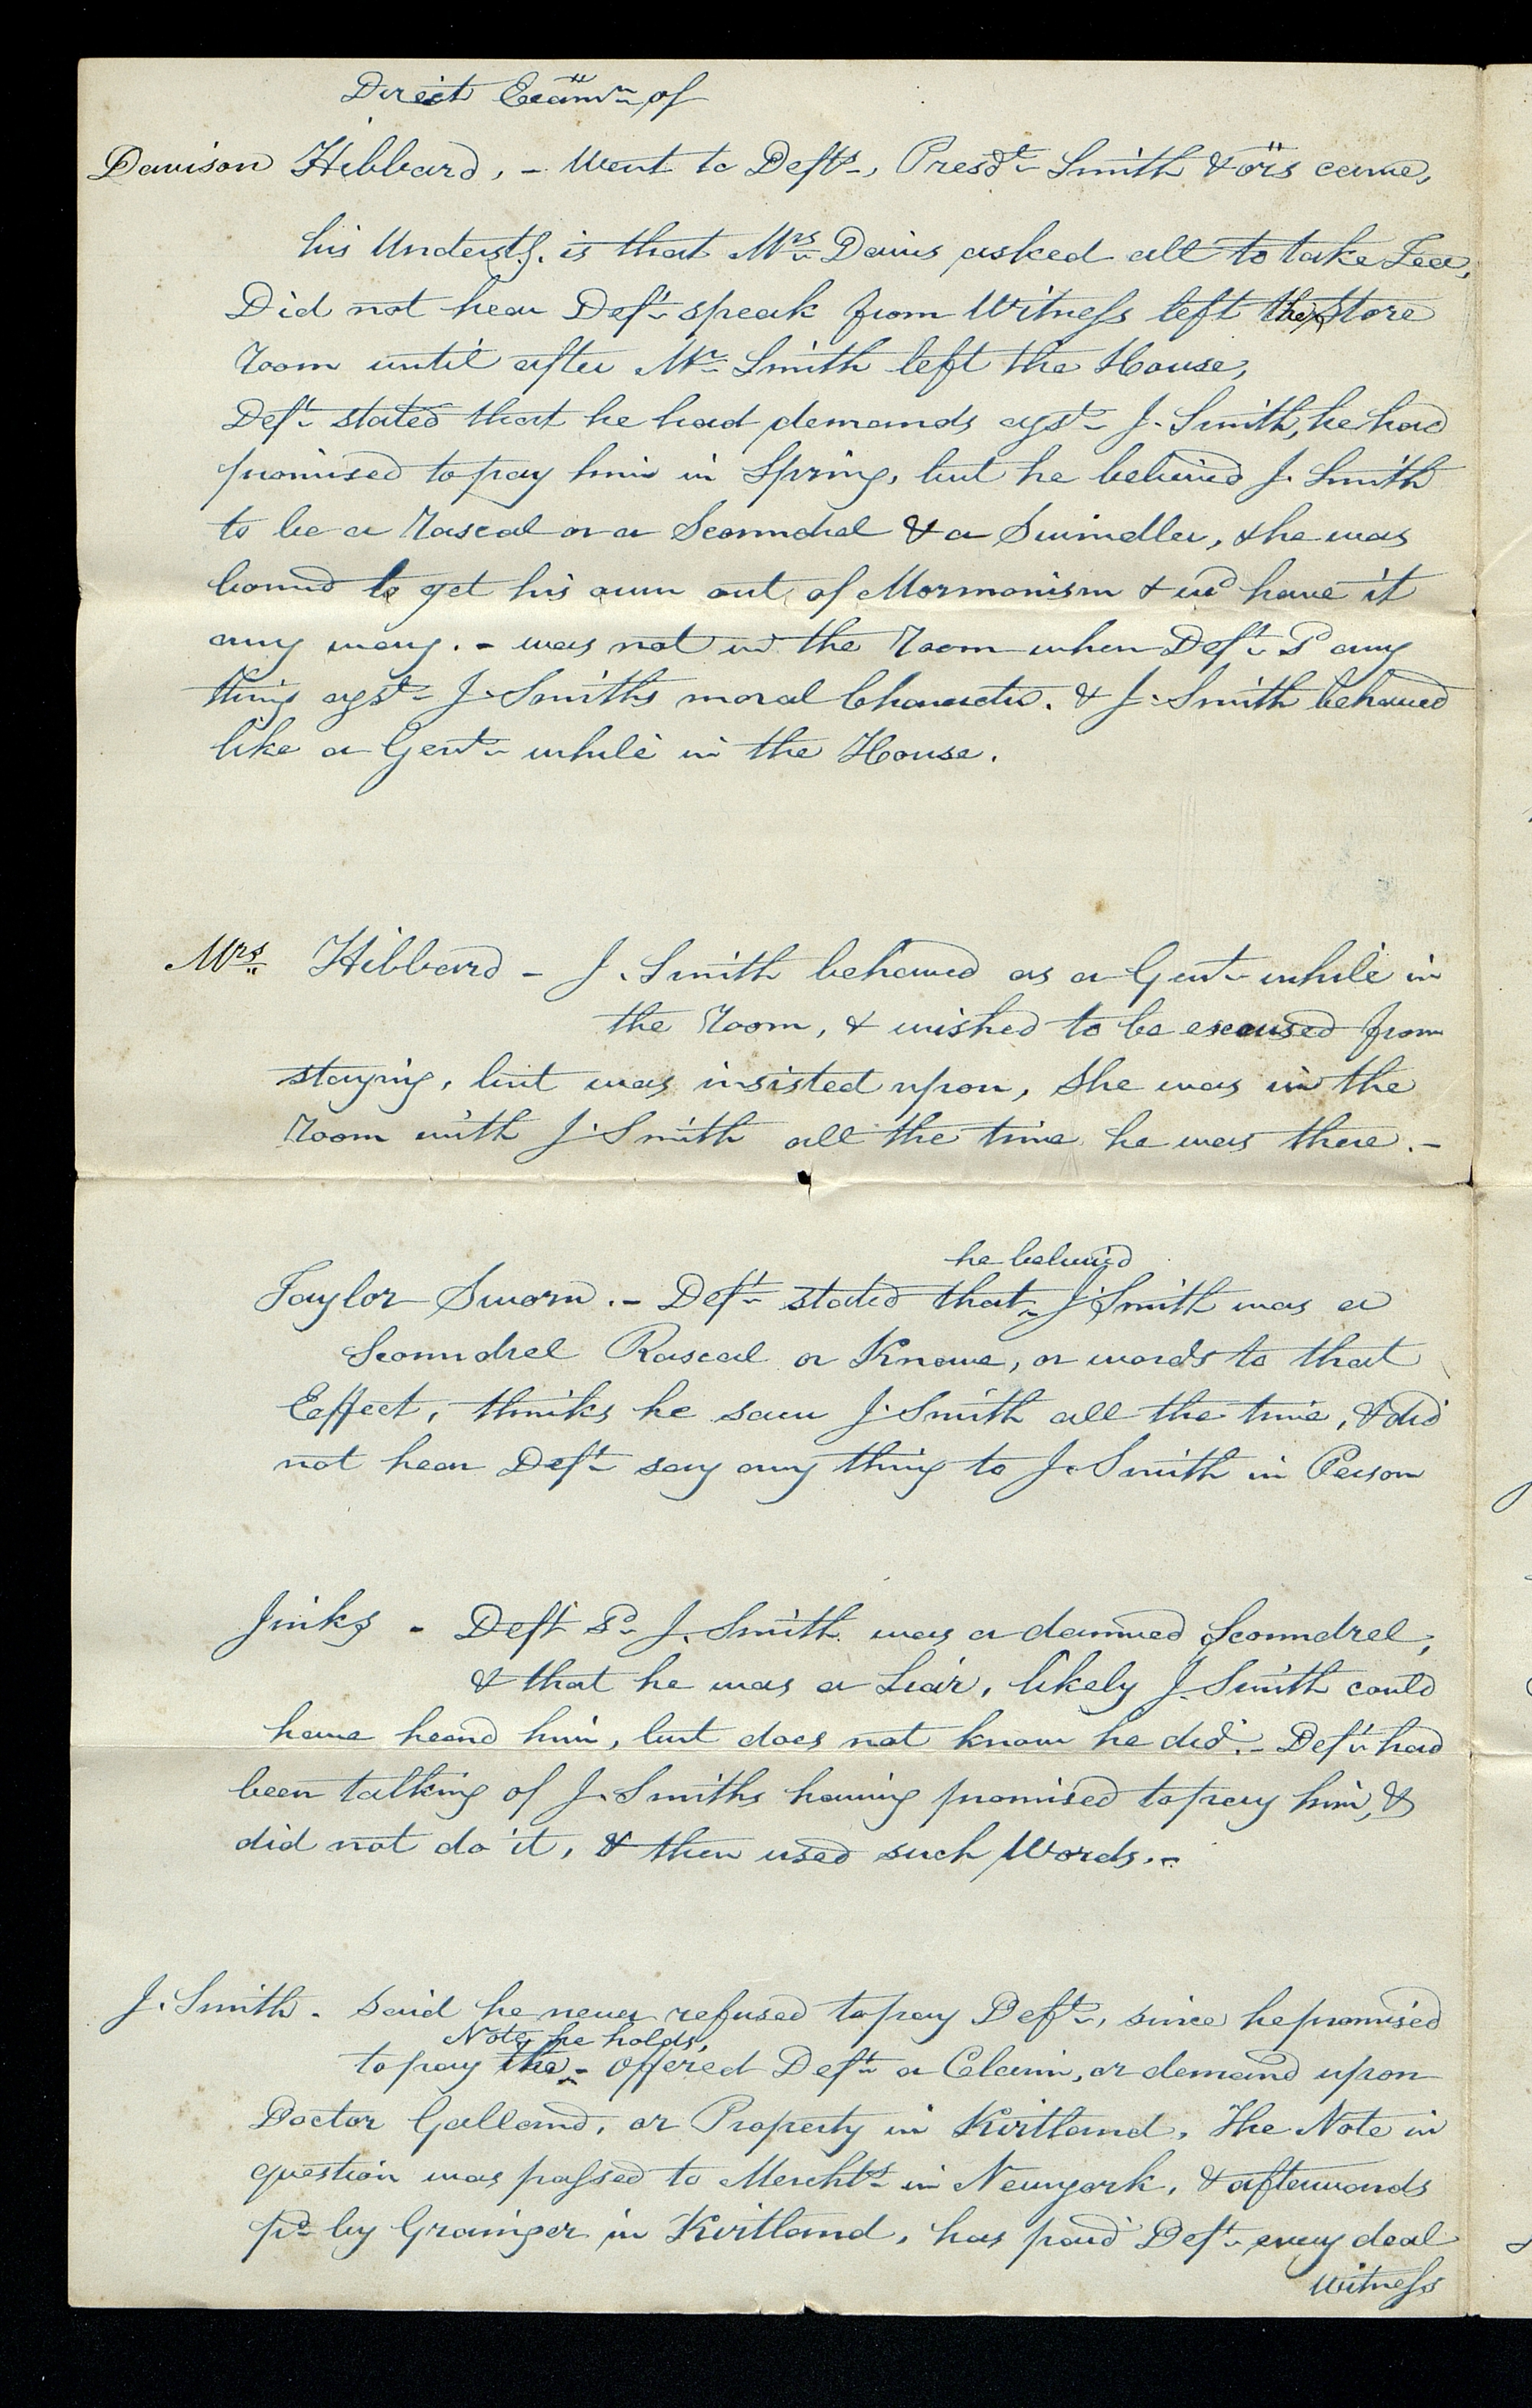 Direct Examn of
Davison Hibbard, - Went to Defts, Presdt Smith & ors came,
his Understg. is that Mrs Davis asked all to take Tea,
Did not hear Deft speak from Witness left the Store
Room until after Mr Smith left the House,
Deft stated that he had demands agst J. Smith, he had
promised to pay him in Spring, but he believed J. Smith
to be a Rascal or a Scoundrel & a Swindler, & he was
bound to get his own out of Mormonism & wd have it
any way. - was not in the Room when Deft Sd any
thing agst J. Smiths moral Character. & J. Smith behaved
like a Gent while in the House.
Mrs Hibbard - J. Smith behaved as a Gent while in
the Room, & wished to be excused from
staying, but was insisted upon, She was in the
Room with J. Smith all the time he was there. -
he believed
Taylor Sworn. - Deft stated that J. Smith was a
Scoundrel Rascal or Knave, or words to that
Effect, thinks he saw J. Smith all the time, & did
not hear Deft say any thing to J. Smith in Person
Jinks - Deft Sd J. Smith was a damned Scoundrel,
& that he was a Liar, likely J. Smith could
have heard him, but does not know he did. - Deft had
been talking of J. Smiths having promised to pay him, &
did not do it, & then used such Words. -
J. Smith - Said he never refused to pay Deft, since he promised
Note he holds,
to pay the - offered Deft a Claim, or demand upon
Doctor Galland, or Property in Kirtland, The Note in
question was passed to Merchts in Newyork, & afterwards
pd by Grainger in Kirtland, has paid Deft every deal
Witness